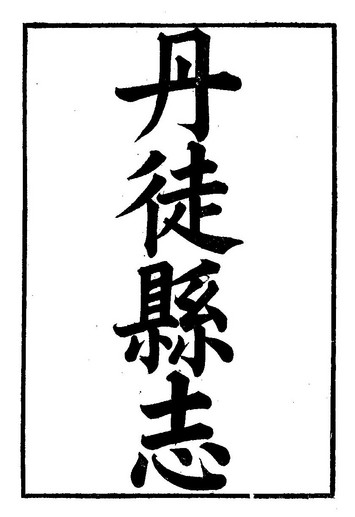 丹徒縣志